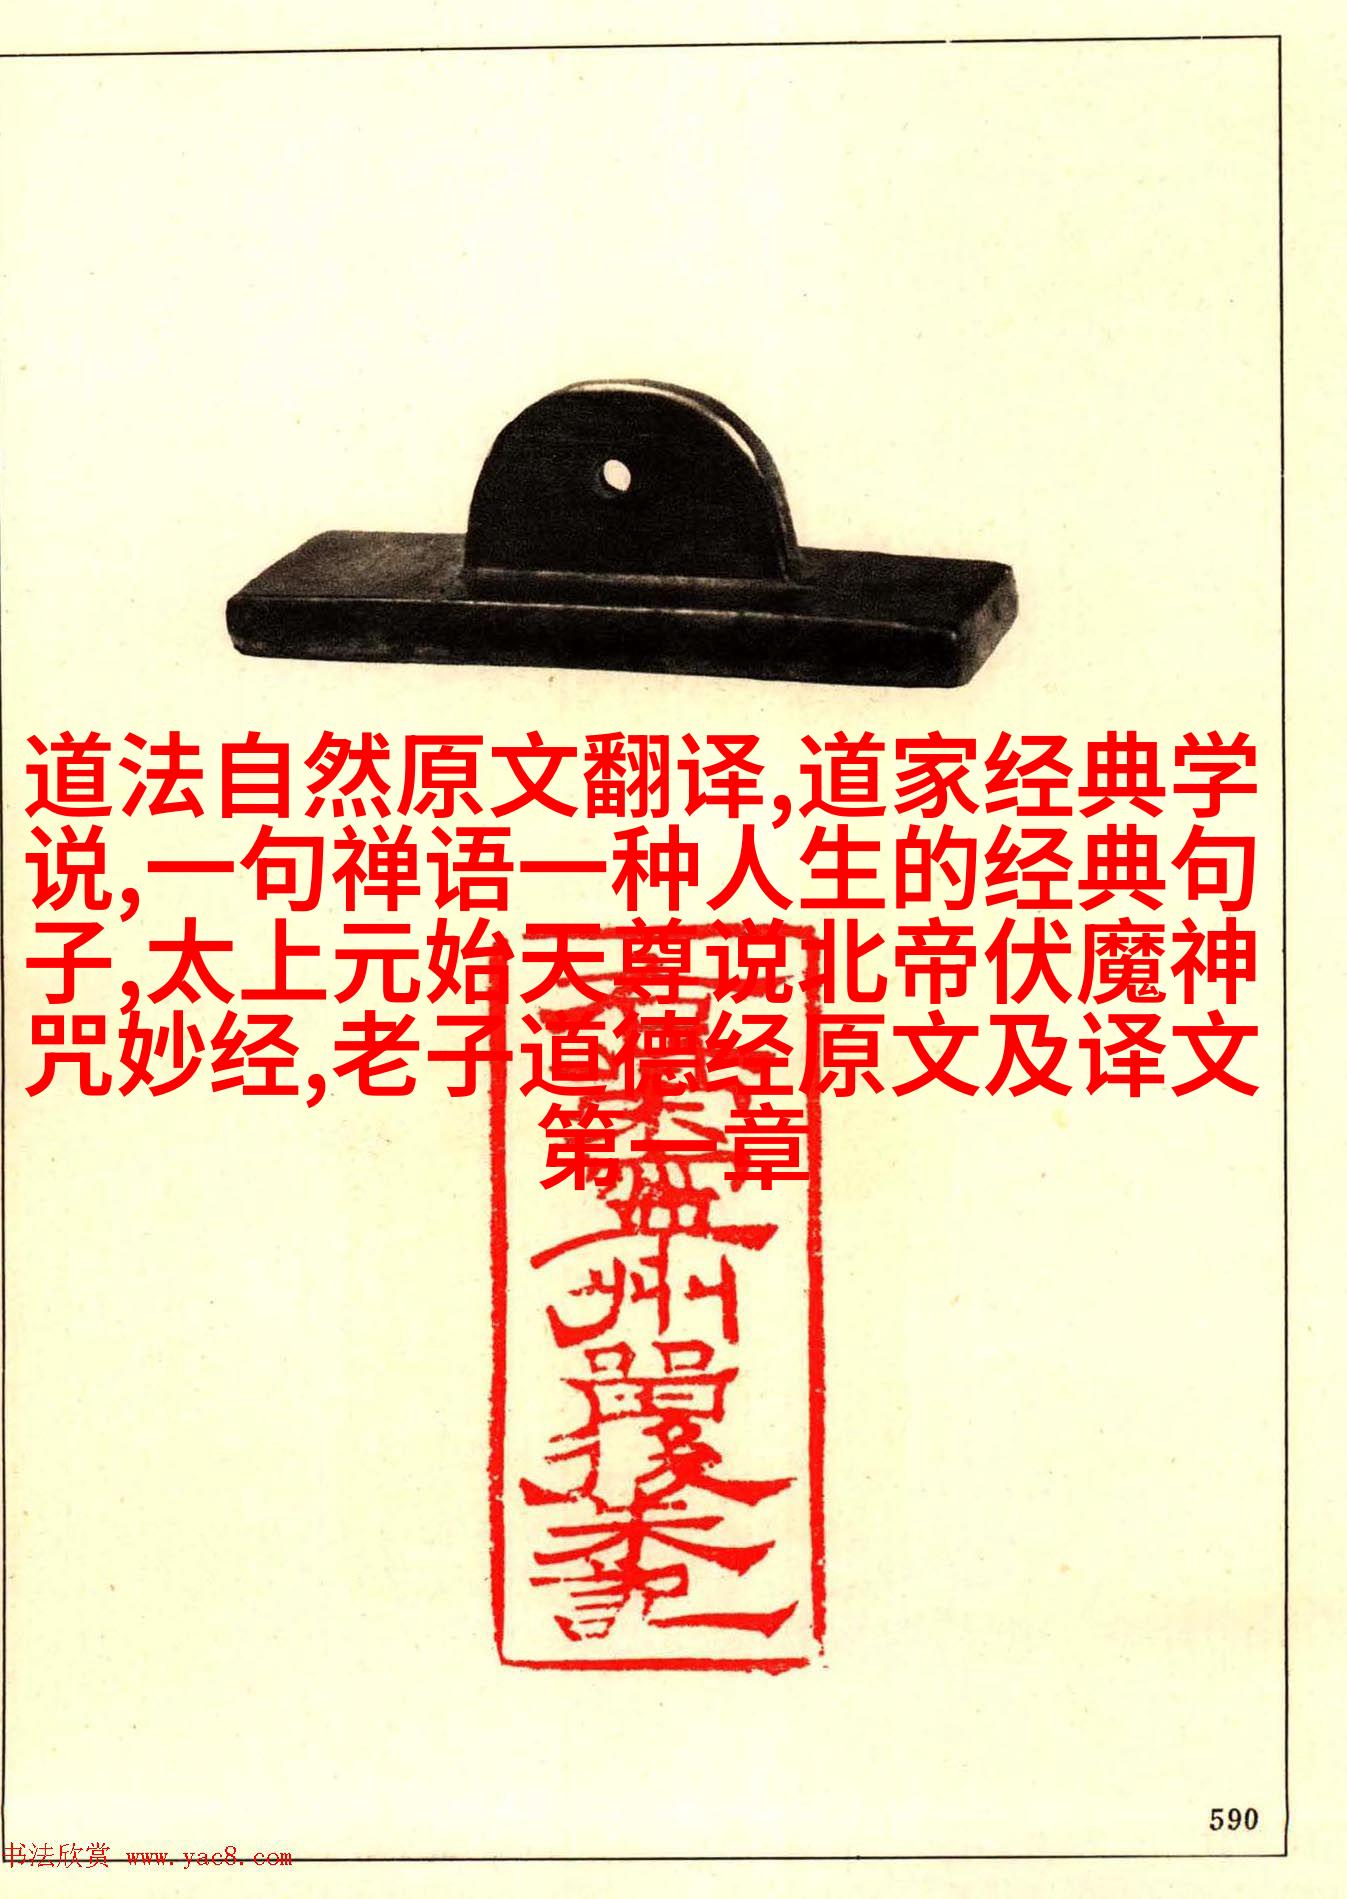 道法自然原文翻译,道家经典学
说,一句禅语一种人生的经典句
子,太上元始天尊说北帝伏魔神
咒妙经,老子道德经原文及译文
第一章
州
記
590
书法欣赏 www.yac8.com